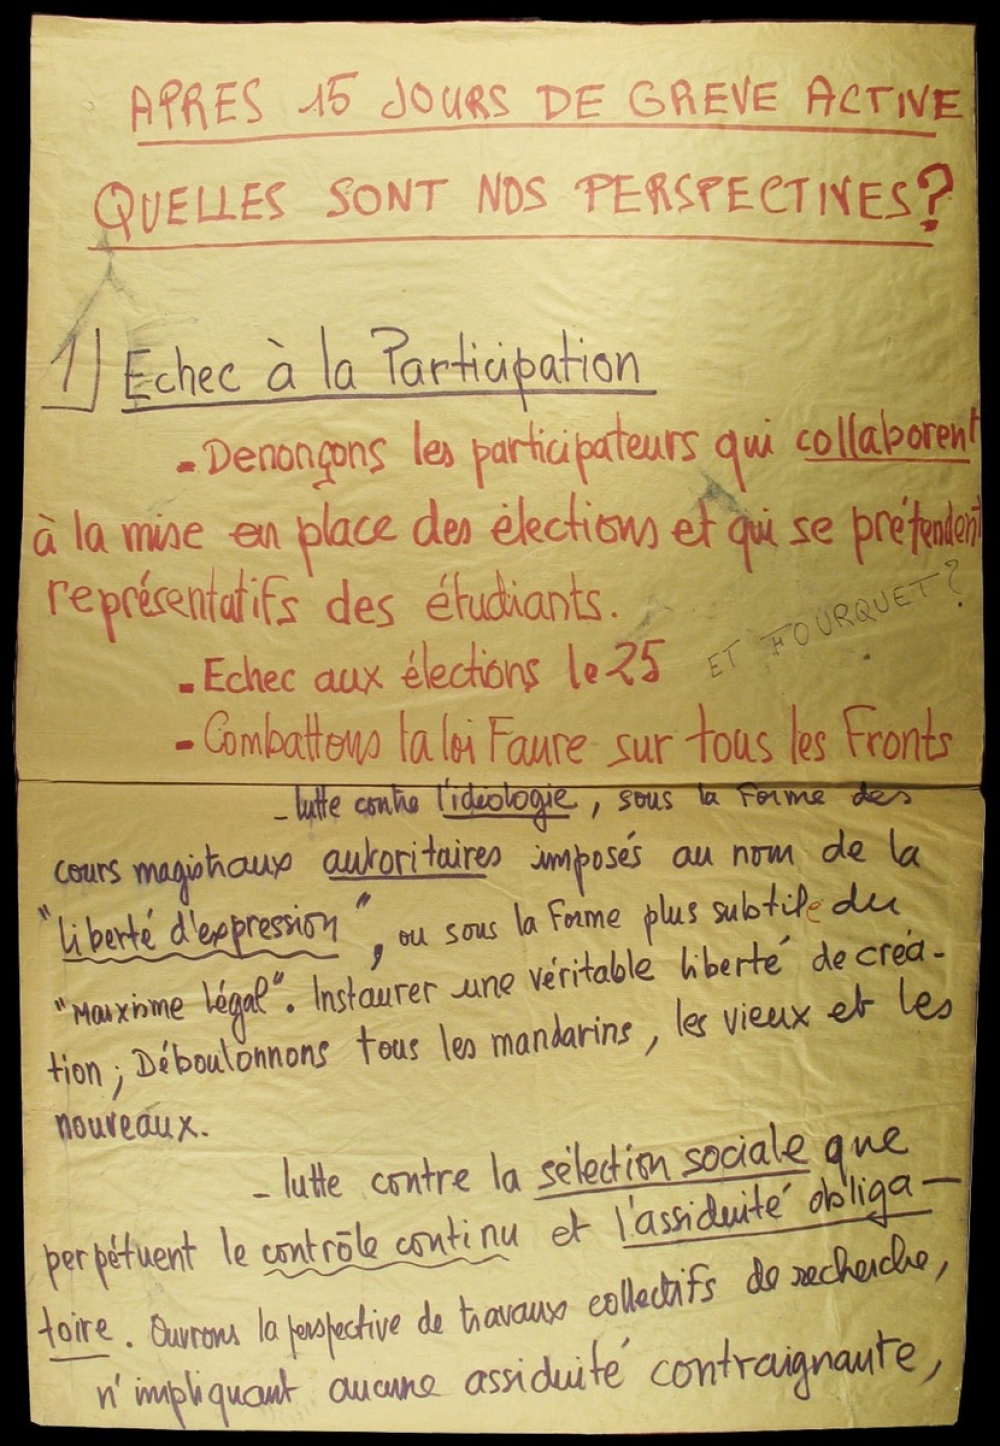 APRES 15 JOURS DE GREVE ACTIVE
QUELLES SONT NOS PERSPECTIVES?
1] Echec à la Participation
- Denonçons les participateurs qui collaborent
à la mise en place des élections et qui se prétendent
représentatifs des étudiants.
ET FOURQUET?
- Echec aux élections le 25
- Combattons la loi Faure sur tous les Fronts
- lutte contre l'idéologie, sous la Forme des
cours magistraux autoritaires imposés au nom de la
"liberté d'expression", ou sous la Forme plus subtile du
"Marxisme légal". Instaurer une véritable liberté de créa-
tion; Déboulonnons tous les mandarins, les vieux et les
nouveaux.
- lutte contre la sélection sociale que
perpétuent le contrôle continu et l'assiduité obliga-
toire. Ouvrons la perspective de travaux collectifs de recherche,
n'impliquant aucune assiduité contraignante,